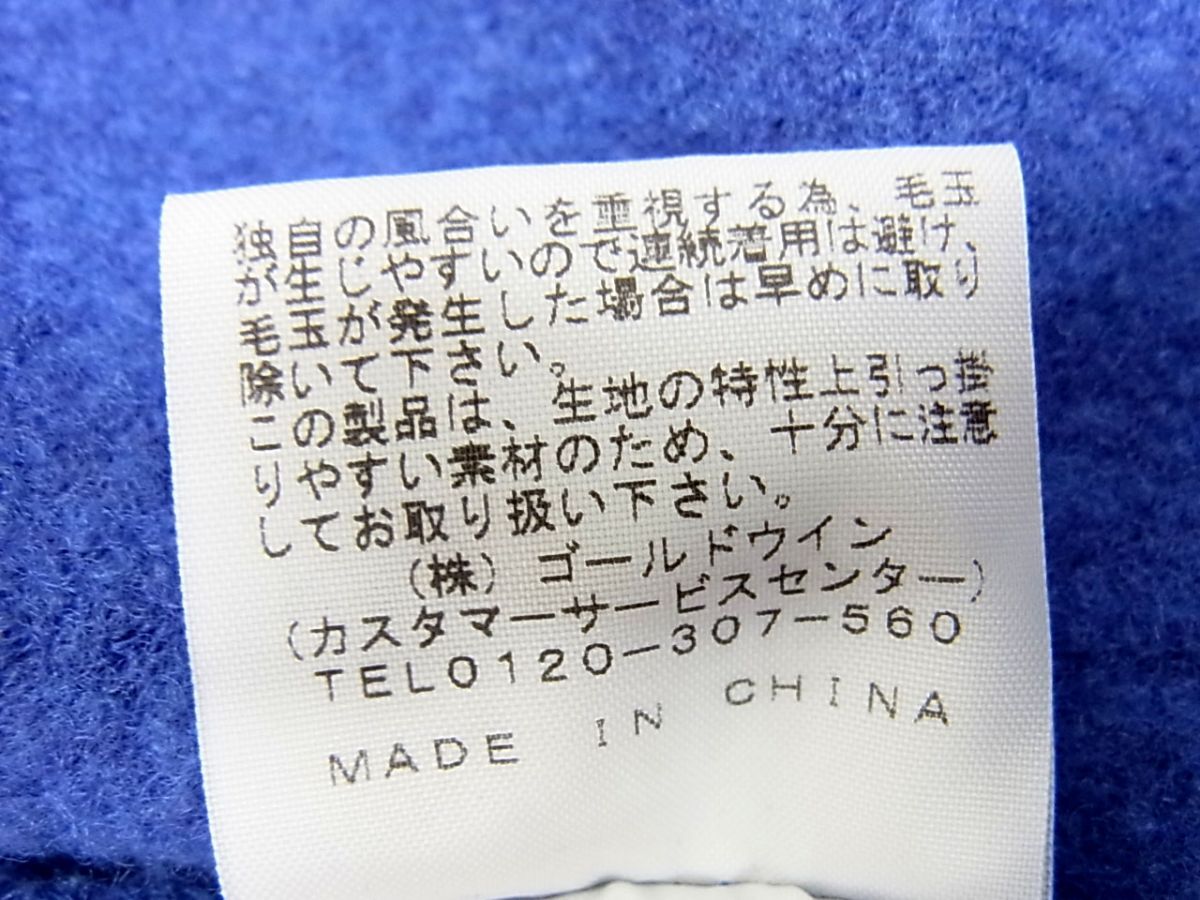 独自の風合いを重視する為、毛玉
が生じやすいので連続着用は避け、
毛玉が発生した場合は早めに取り
除いて下さい。
この製品は、生地の特性上引っ掛
りやすい素材のため、十分に注意
してお取り扱い下さい。
(株)ゴールドウイン
(カスタマーサービスセンター)
TEL0120-307-560
MADE IN CHINA